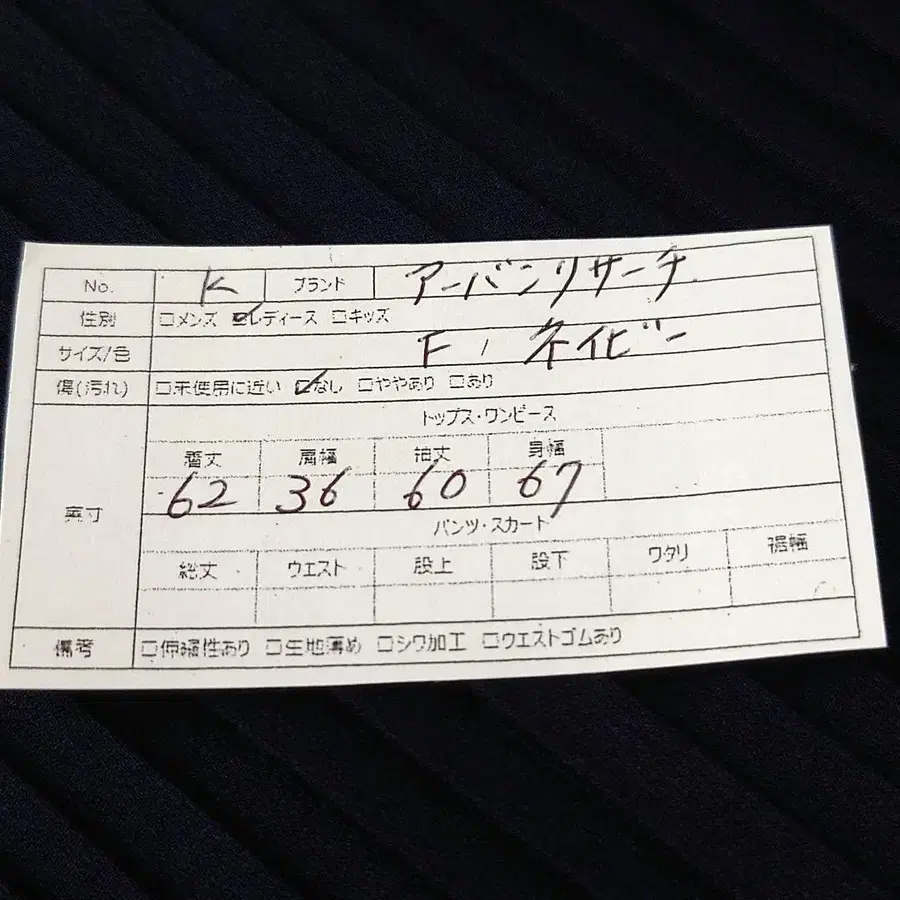 No. K ブランド アーバンリサーチ
性別 □メンズ ☑レディース □キッズ
サイズ/色 F / ネイビー
傷(汚れ) □未使用に近い ☑なし □ややあり □あり
実寸
トップス・ワンピース
着丈 肩幅 袖丈 身幅
62 36 60 67
パンツ・スカート
総丈 ウエスト 股上 股下 ワタリ 裾幅
備考 □伸縮性あり □生地薄め □シワ加工 □ウエストゴムあり